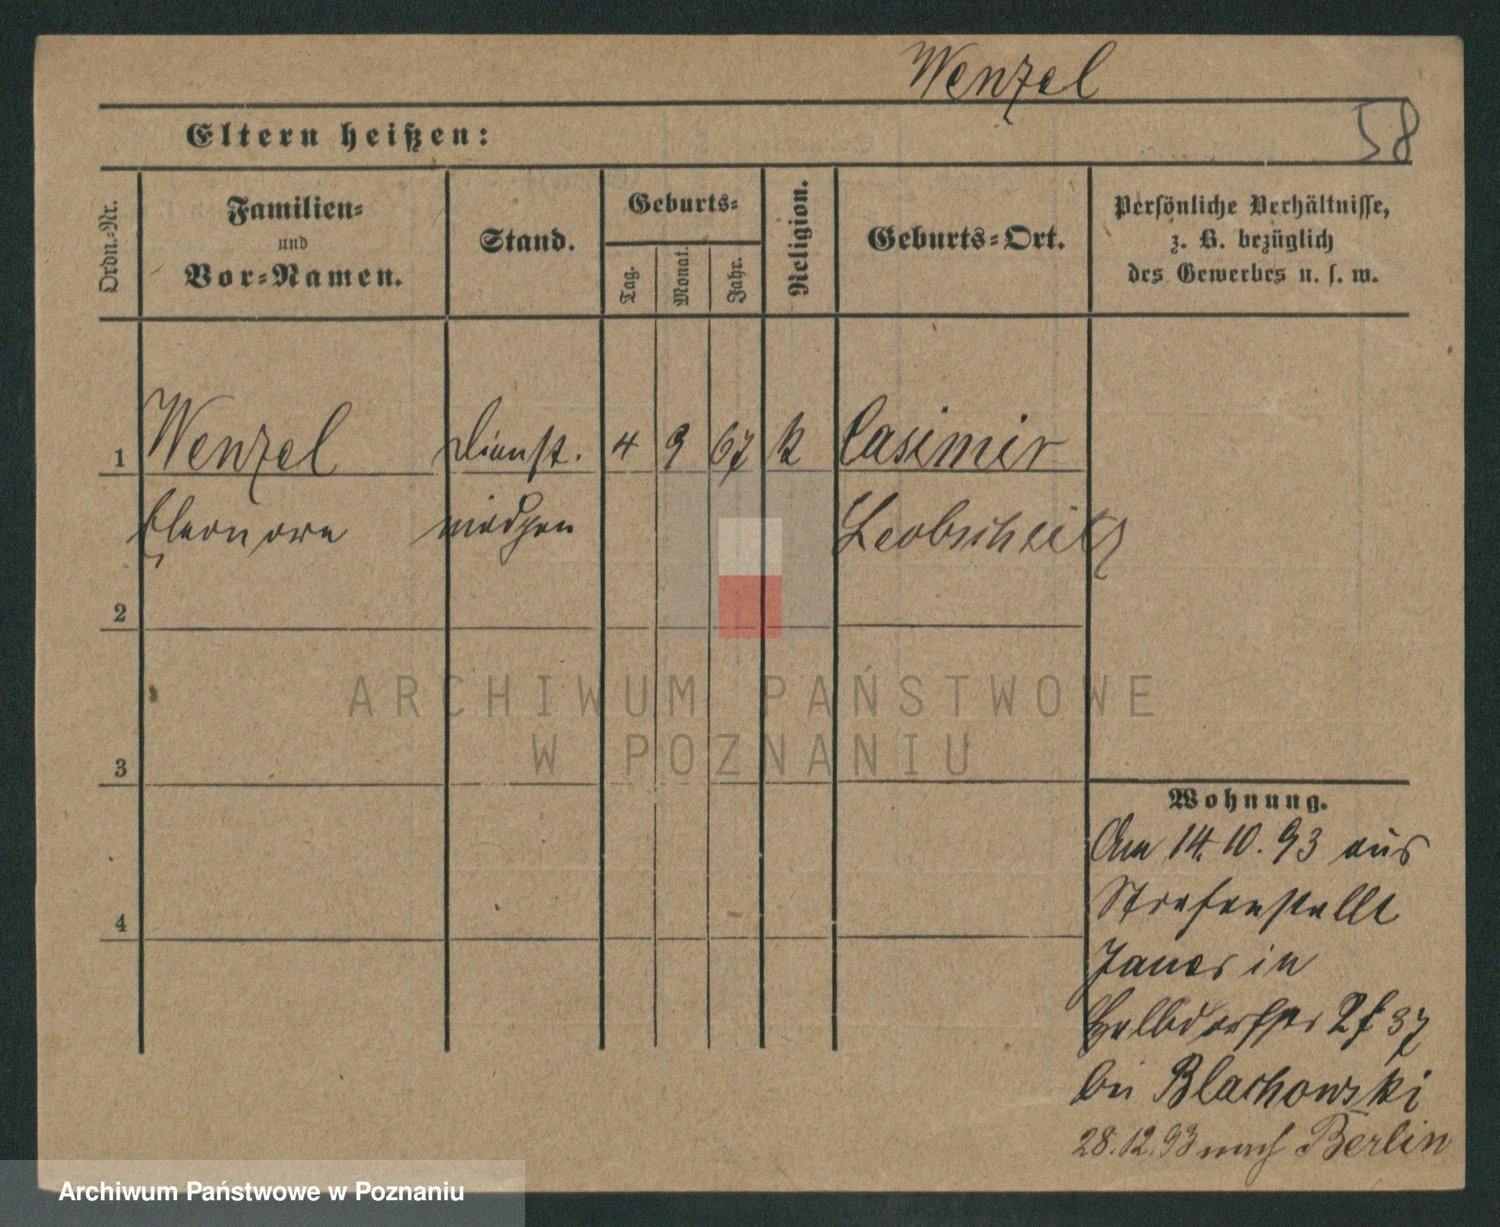 Wenzel
58
Eltern heißen:
Ordn.-Nr.
Familien-
und
Vor-Namen.
Stand.
Geburts-
Tag.
Monat.
Jahr.
Religion.
Geburts-Ort.
Persönliche Verhältnisse,
z. B. bezüglich
des Gewerbes u. s. w.
1 Wenzel Dienst. 4 9 67 k Casimir
Eleonore mädgen Leobschütz
2
3
4
Wohnung.
Am 14. 10. 93 aus
Jauer in
Halbdorfstr 37
bei Blachowski
28.12.93 nach Berlin
ARCHIWUM PAŃSTWOWE
W POZNANIU
Archiwum Państwowe w Poznaniu